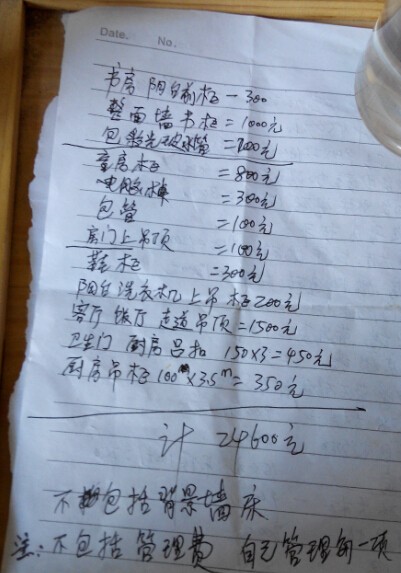 Date. No.
书房 阳台前柜 - 300
整面墙书柜 = 1000元
包 水管 = 200元
童房柜 = 800元
电脑 = 300元
包管 = 100元
房门上吊顶 = 100元
鞋柜 = 300元
阳台洗衣机上吊柜200元
客厅 饭厅 走道吊顶 = 1500元
卫生门 厨房吕扣 150×3 = 450元
厨房吊柜 100×3.5m = 350元
计 24600元
不包括背景墙 床
注: 不包括管理费 自己管理 一项